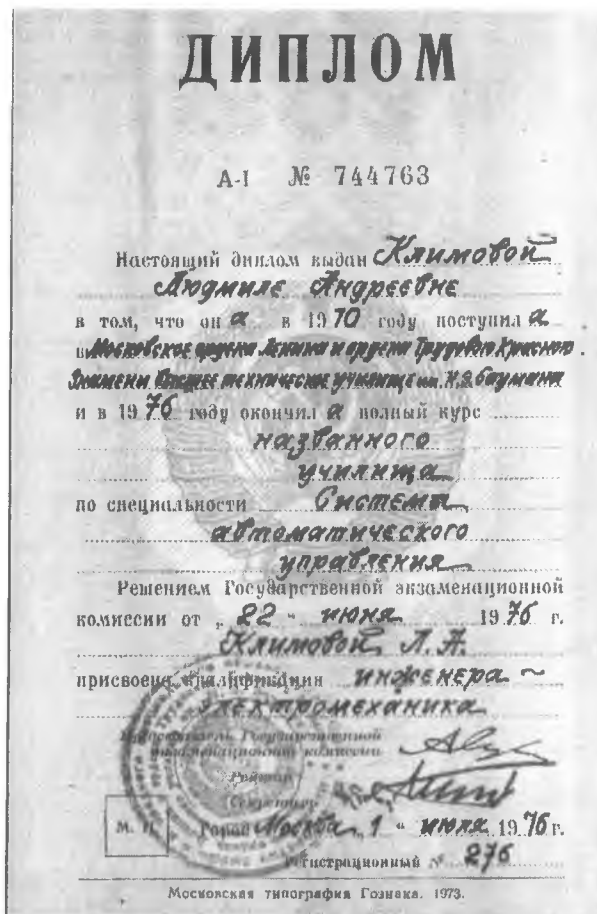 ДИПЛОМ
А-I № 744763
Настоящий диплом выдан Климовой
Людмиле Андреевне
в том, что он а в 1970 году поступил а
в Московское ордена Ленина и ордена Трудового Красного
Знамени Высшее техническое училище им. Н.Э. Баумана
и в 1976 году окончил а полный курс
названного
училища
по специальности Системы
автоматического
управления
Решением Государственной экзаменационной
комиссии от „22" июня 1976 г.
Климовой Л. А.
присвоена квалификация инженера ~
электромеханика
Председатель Государственной
экзаменационной комиссии
Ректор
Секретарь
М. П. Город Москва, 1 " июля 1976 г.
Регистрационный № 276
Московская типография Гознака. 1973.